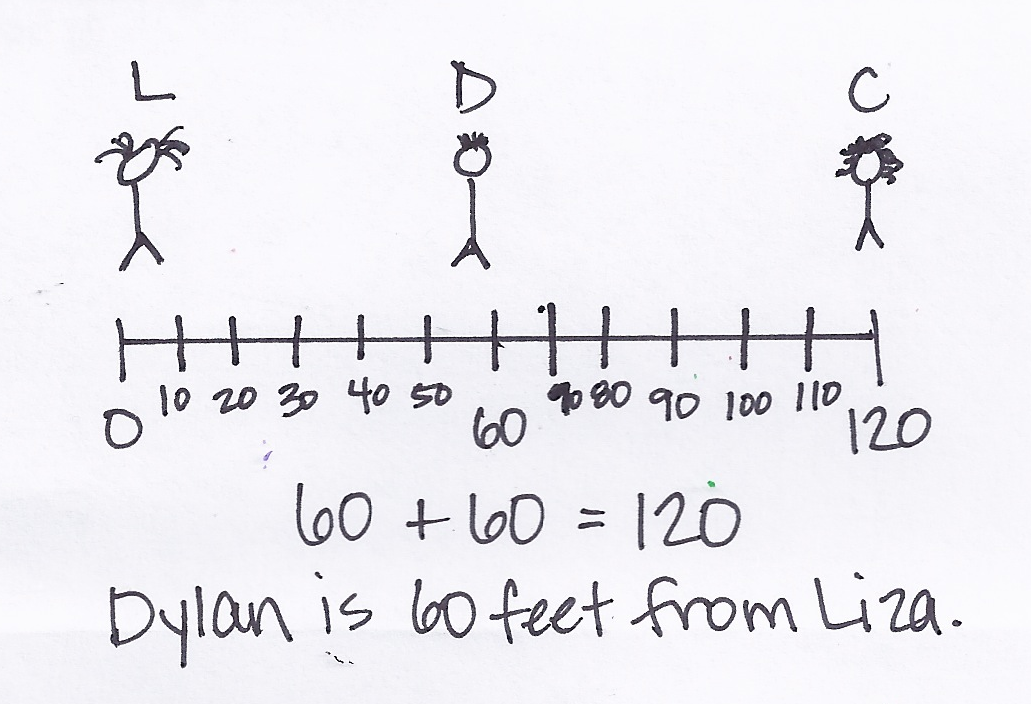 L D C
10 20 30 40 50 80 90 100 110
0 60 120
60 + 60 = 120
Dylan is 60 feet from Liza.